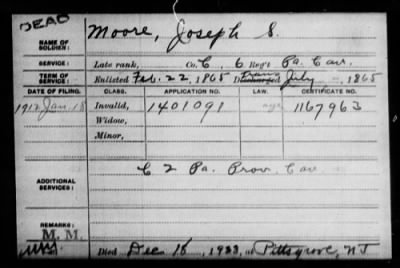 DEAD
NAME OF SOLDIER: Moore, Joseph S.
SERVICE: Late rank, Co. C, 6 Reg't Pa. Cav.
TERM OF SERVICE: Enlisted Feb. 22, 1865 Discharged Trans July –, 1865
DATE OF FILING. CLASS. APPLICATION NO. LAW. CERTIFICATE NO.
1912 Jan. 18 Invalid, 1401091 age 1167963
Widow,
Minor,
ADDITIONAL SERVICES: C 2 Pa. Prov. Cav
REMARKS:
M. M.
Died Dec 18, 1933, at Pittsgrove, NJ